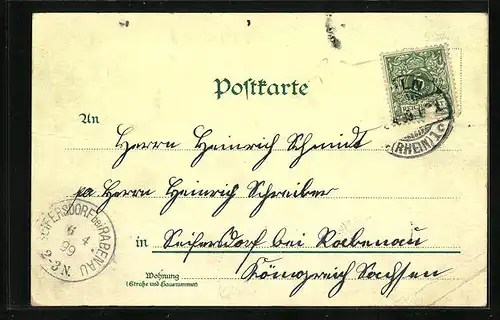 Postkarte
An
Herrn Heinrich Schmidt
pa. Herrn Heinrich Schreiber
in Seifersdorf bei Rabenau
Wohnung
(Straße und Hausnummer)
Königreich Sachsen
SEIFERSDORF bei RABENAU
6 4
99
2-3 N.
(RHEIN)